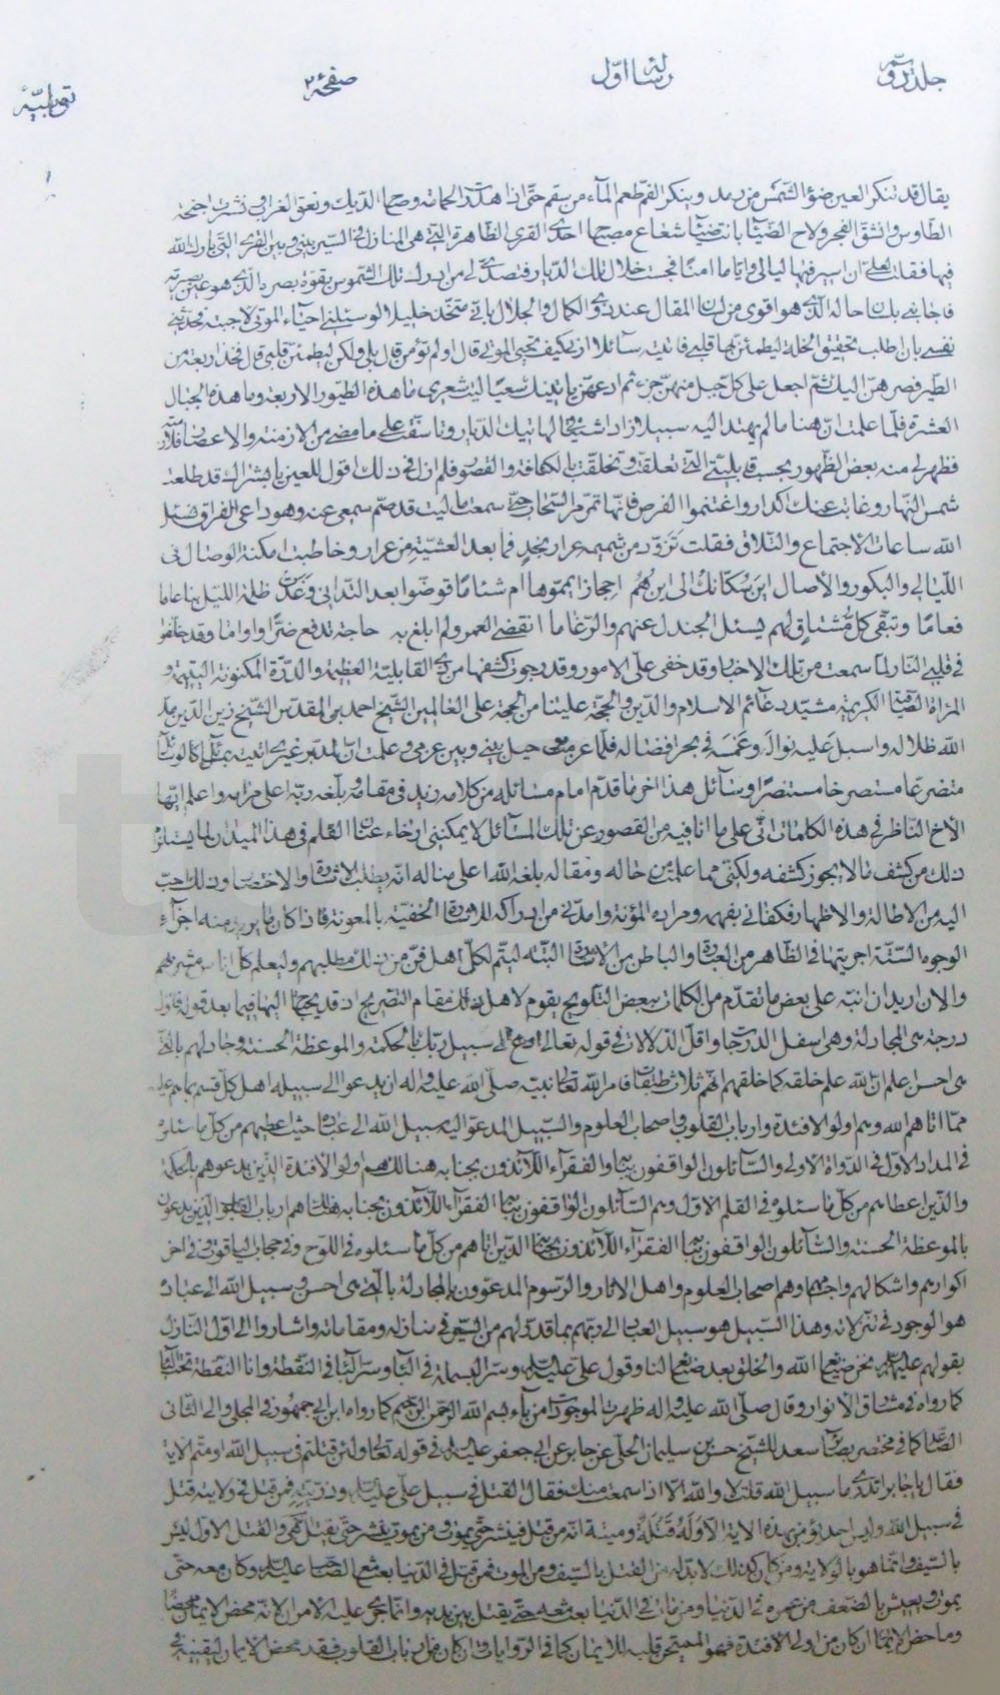 جلد دوم رسالۀ اوّل صفحۀ ۲ توبلیّه
يقال قد تنكر العين ضوء الشمس من رمد وينكر الفم طعم الماء من سقم حتى اذا هدأت الحمامة وصاح الديك ونعق الغراب ونشرت اجنحة
الطاوس وانشق الفجر ولاح الضياء شعاع مصبحها احدى القرى الظاهرة التي هي المنازل في السير بيني وبين القرى التي بارك الله
فيها فقلت لعلي ان اسير فيها ليالي واياما امنا فجست خلال تلك الديار فتصدى لي من ادرك تلك الشموس بقوة بصره الذي هو عين بصيرته
فاجابني بلسان حاله الذي هو اقوى من لسان المقال عند ذوي الكمال والجلال باني متخذ خليلا لو سئلني احياء الموتى لاجبته فحدثتني
نفسي بان اطلب تحقيق الخلة ليطمئن بها قلبي فاتيته سائلا ارني كيف تحيي الموتى قال اولم تؤمن قال بلى ولكن ليطمئن قلبي قال فخذ اربعة من
الطير فصرهن اليك ثم اجعل على كل جبل منهن جزء ثم ادعهن يأتينك سعيا ليت شعري ما هذه الطيور الاربعة وما هذه الجبال
العشرة فلما علمت ان هنا ما لم يهتد اليه سبيلا زاد اشتياقي الى هاتيك الديار وتأسفت على ما مضى من الازمنة والاعصار
فظهر لي منه بعض الظهور بحسب قابليتي التي تعلقت وتخلقت بالكثافة والقصور فلم ازل في ذلك اقول للعين يا بشراك قد طلعت
شمس النهار وغابت عنك اكدار واغتنموا الفرص فانها تمر مر السحاب حتى سمعت ما ليت قد صم سمعي عنه وهو داعي الفراق فسئل
الله ساعات الاجتماع والتلاق فقلت تزود من شميم عرار نجد فما بعد العشية من عرار وخاطبت امكنة الوصال في
الليالي والبكور والاصال اين سكانك الى اين هم احجازا يمموها ام شئاما قوضوا بعد التداني وغدت ظلمة الليل بنا عاما
فعاما وتبقى كل مشتاق لهم يسئل الجندل عنهم والرغاما انقضى العمر ولم ابلغ به حاجة تدفع ضرا واواما وقد
في قلبي النار لما سمعت من تلك الاخبار وقد خفي علي الامور وقد رجوت كشفها من ذي القابلية العظيمة والدرة المكنونة اليتيمة و
المراة الصافية الكريمة مشيد دعائم الاسلام والدين والحجة علينا من الحجة على العالمين الشيخ احمد بن المقدس الشيخ زين الدين مد
الله ظلاله واسبل عليه نواله وغمسه في بحر افضاله فلما عرفت حيل بيني وبين عزمي وعلمت ان المدبر غيري اتيته بمثل
متضرعا مستصرخا مستنصرا وسائل هذا اخر ما قدم امام مسائله من كلامه زيد في مقامه بلغه ربه اعلى مرامه واعلم ايها
الاخ الناظر في هذه الكلمات اني على ما انا فيه من القصور عن تلك المسائل لا يمكنني ارخاء عنان القلم في هذا الميدان لما يستلزم
ذلك من كشف ما لا يجوز كشفه ولكني مما علمت من حاله ومقاله بلغه الله اعلى مناله انه يطلب الاشارة والاختصار وذلك احب
اليه من الاطالة والاظهار فكفاني بفهمه ومراده المؤنة وامدني من ادراكه للرموز الخفية بالمعونة فاذا كان ما يريد منه اجزاء
الوجوه الستة اجريتها في الظاهر من العبارة والباطن من الاشارة ليتم لكل اهل فن من ذلك مطلبهم وليعلم كل اناس مشربهم
والان اريد ان انبه على بعض ما تقدم من الكلمات ببعض التلويح يقوم لاهل ذلك مقام التصريح اذ قد يحتاج اليها فيما بعد قوله
درجة هي المجادلة وهي اسفل الدرجات واقل الدلالات في قوله تعالى ادع الى سبيل ربك بالحكمة والموعظة الحسنة وجادلهم بالتي
هي احسن اعلم ان الله علم خلقه كما خلقهم انهم ثلاث طبقات فامر الله تعالى نبيه صلى الله عليه واله ان يدعوا الى سبيله اهل كل قسم بما هم عليه
مما اتاهم الله وهم اولو الافئدة وارباب القلوب واصحاب العلوم والسبيل المدعو اليه سبيل الله الى عباده حيث اعطيهم من كل ما سئلوه
في المداد الاول في الدواة الاولى والسائلون الواقفون ببابه والفقراء اللائذون بجنابه هنالك هم اولو الافئدة الذين يدعوهم بالحكمة
والذين اعطاهم من كل ما سئلوه في القلم الاول وهم السائلون الواقفون ببابه الفقراء اللائذون بجنابه هنالك هم ارباب القلوب الذين يدعون
بالموعظة الحسنة والسائلون الواقفون ببابه الفقراء اللائذون بجنابه الذين اتاهم من كل ما سئلوه في اللوح وفي حجاب الياقوت في اخر
اكوارهم واشكالهم وهم اصحاب العلوم واهل الاثار والرسوم المدعوون بالمجادلة بالتي هي احسن وسبيل الله الى عباده
هو الوجود في تنزلاته وهذا السبيل هو سبيل العباد الى ربهم بما قدر لهم من السير في منازله ومقاماته واشاروا الى اول المنازل
بقولهم عليهم السلام نحن صنايع الله والخلق بعد صنايع لنا وقول علي عليه السلام وسر البسملة في الباء وسر الباء في النقطة وانا النقطة تحت الباء
كما رواه في مشارق الانوار وقال صلى الله عليه واله ظهرت الموجودات من باء بسم الله الرحمن الرحيم كما رواه ابن ابي جمهور في المجلي والى الثاني
كما في مختصر بصائر سعد للشيخ حسن بن سليمان الحلي عن جابر عن ابي جعفر عليه السلام في قوله تعالى ولئن قتلتم في سبيل الله او متم الاية
فقال يا جابر اتدري ما سبيل الله قلت لا والله الا اذا سمعت منك فقال القتل في سبيل علي عليه السلام وذريته فمن قتل في ولايته قتل
في سبيل الله وليس احد يؤمن بهذه الاية الا وله قتلة وميتة انه من قتل فينشر حتى يموت ومن يموت ينشر حتى يقتل والقتل الاول ليس
بالسيف وانما هو بالولاية ومن كان كذلك لابد له من القتل بالسيف ومن الموت فمن قتل في الدنيا بعث مع الصاحب عليه السلام وكان معه حتى
يموت ويعيش بالضعف من عمره في الدنيا ومن مات في الدنيا بعث معه حتى يقتل بين يديه وانما جرى عليه الامران لانه محض الايمان محضا
وما حض الايمان ان كان من اولي الافئدة فهو الممتحن قلبه للايمان كما في الروايات وان كان من ارباب القلوب فقد محض الايمان ليقينه